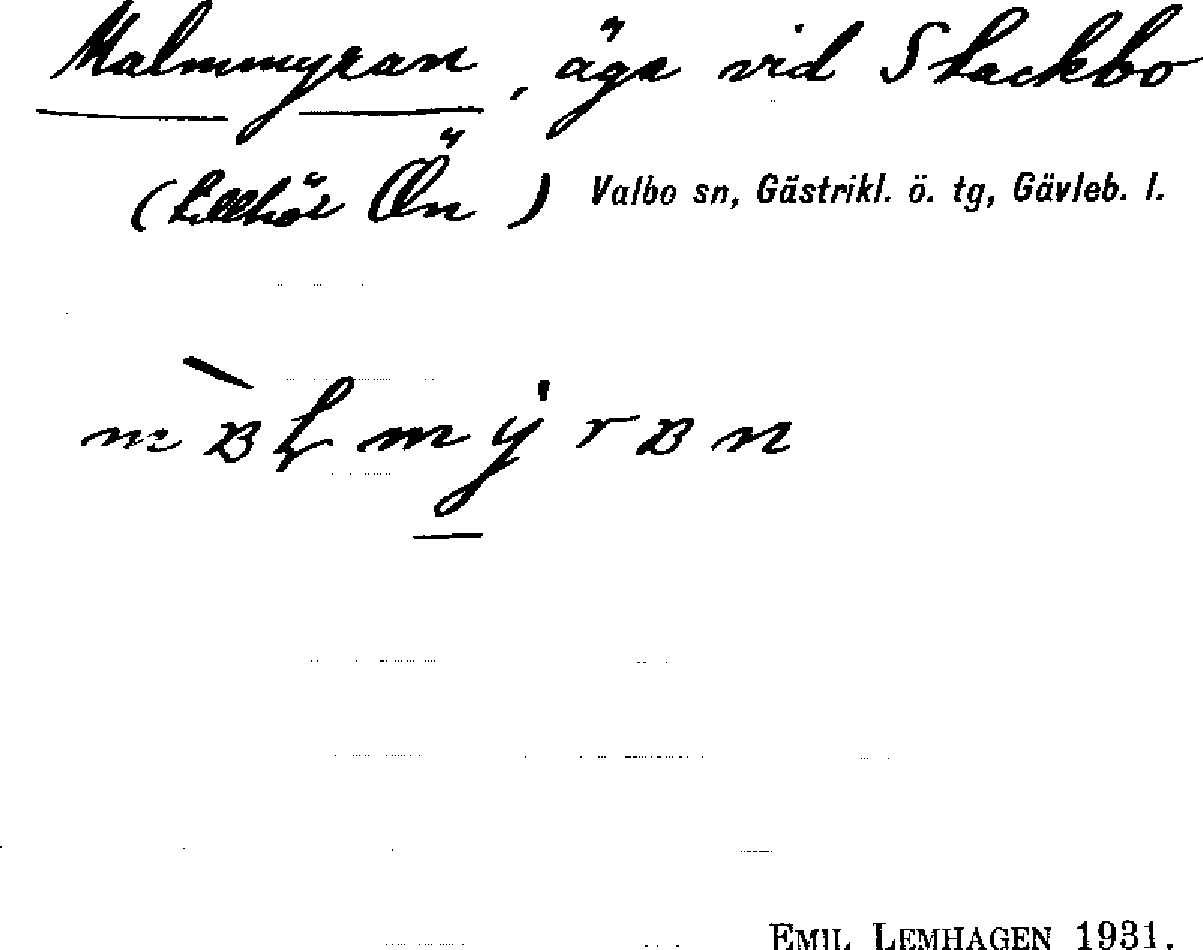 Malmmyran, äga vid Stackbo
(tillhör Ön) Valbo sn, Gästrikl. ö. tg, Gävleb. l.
EMIL LEMHAGEN 1931.